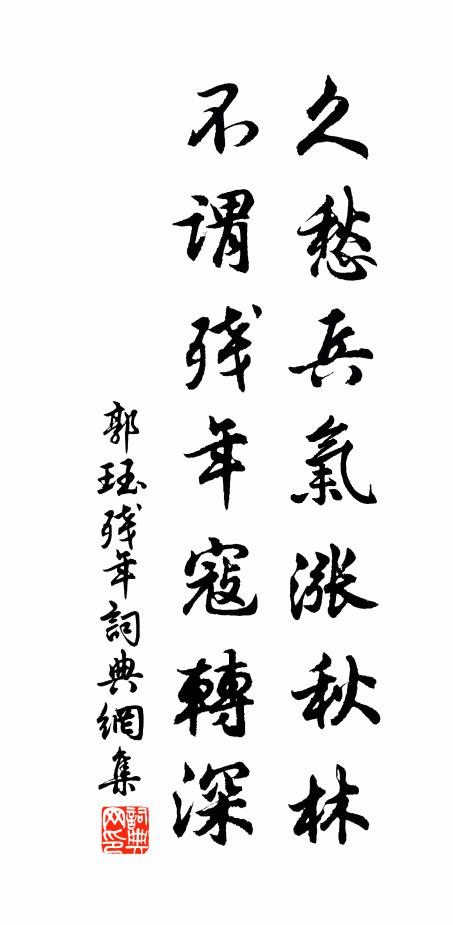 久愁兵氣漲秋林
不謂殘年寇轉深
郭珏殘年詞典網集
詞典网印